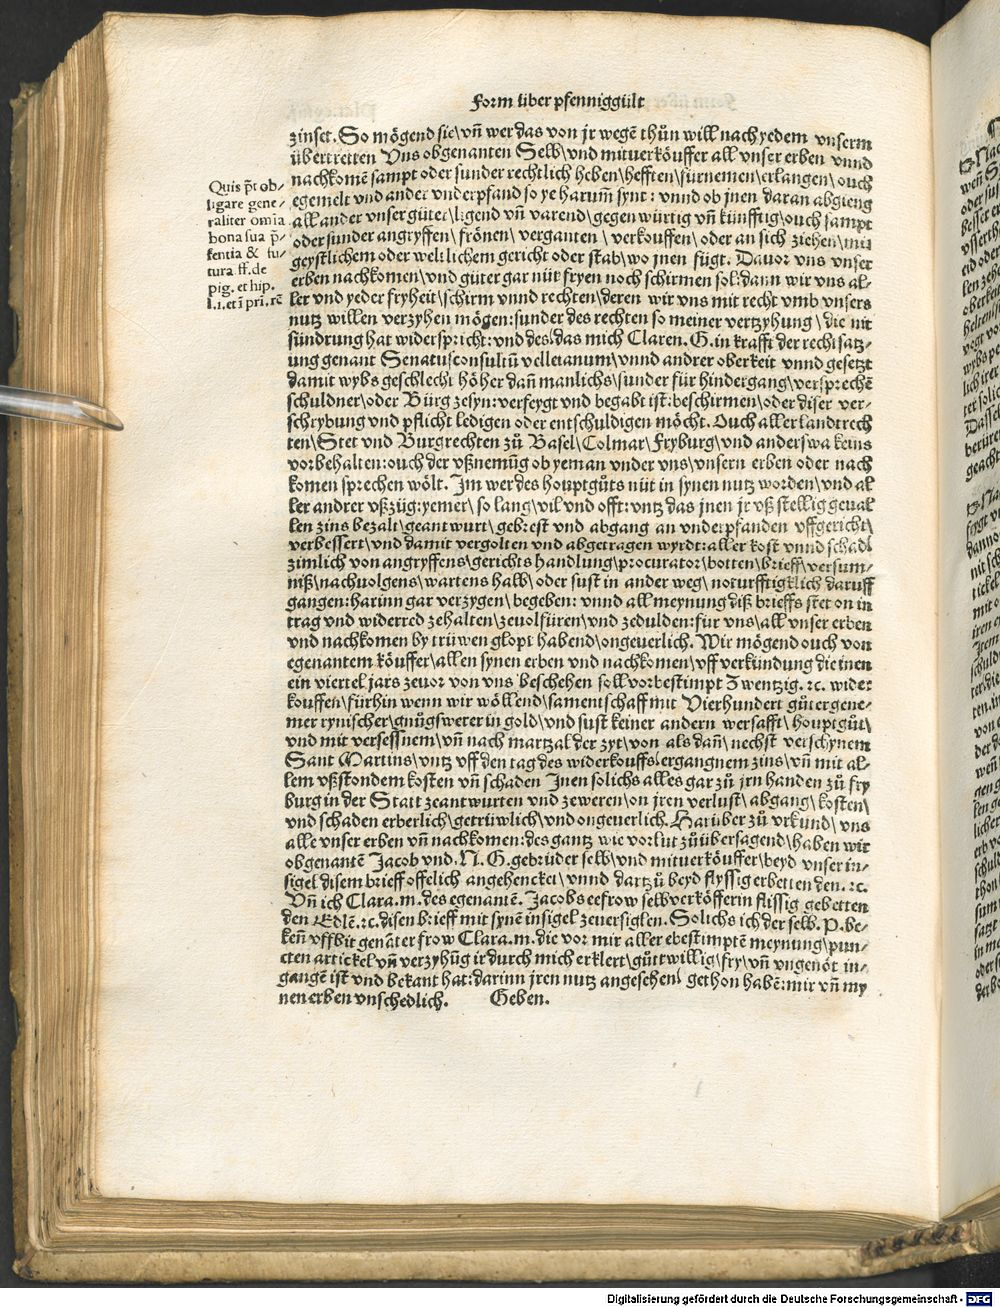 Form über pfenniggült
zinset. So mögend sie\ vn̄ wer das von jr wegē thůn will nach yedem vnserm
übertretten Vns obgenanten Selb\ vnd mituerköuffer all vnser erben vnnd
nachkomē sampt oder sunder rechtlich heben\ hefften\ fürnemen\ erlangen\ ouch
egemelt vnd ander vnderpfand so ye harum̄ synt: vnnd ob jnen daran abgieng
all ander vnser güter\ ligend vn̄ varend\ gegenwürtig vn̄ künfftig\ ouch sampt
oder sunder angryffen\ frönen\ verganten \ verkouffen\ oder an sich ziehen\ mit
geystlichem oder weltlichem gericht oder stab\ wo jnen fügt. Dauor vns vnser
erben nachkomen\ vnd güter gar nüt fryen noch schirmen sol: dann wir vns al-
ler vnd yeder fryheit\ schirm vnnd rechten\ deren wir vns mit recht vmb vnsers
nutz willen verzyhen mögen: sunder des rechten so meiner vertzyhung \ die nit
sündrung hat widerspricht: vnd des\ das mich Claren. G. in krafft der rechtsatz-
ung genant Senatusconsultū velleianum\ vnnd andrer oberkeit vnnd gesetzt
damit wybs geschlecht höher dan̄ manlichs\ sunder für hindergang\ versprechē
schuldner\ oder Bürg zesyn: verfeygt vnd begabt ist: beschirmen\ oder diser ver-
schrybung vnd pflicht ledigen oder entschuldigen möcht. Ouch aller landtrech
ten\ Stet vnd Burgrechten zů Basel\ Colmar\ Fryburg\ vnd anderswa keins
vorbehalten: ouch der vßnemūg ob yeman vnder vns\ vnsern erben oder nach
komen sprechen wölt. Im wer des houptgůts nüt in synen nutz worden\ vnd al
ler andrer vßzüg: yemer\ so lang\ vil vnd offt: vntz das jnen jr vßstellig geual
len zins bezalt\ geantwurt\ gebrest vnd abgang an vnderpfanden vffgericht\
verbessert\ vnd damit vergolten vnd abgetragen wyrdt: aller kost vnnd schad\
zimlich von angryffens\ gerichts handlung\ procurator\ botten\ brieff\ versum-
niß\ nachuolgens\ wartens halb\ oder sust in ander weg\ noturfftigklich daruff
gangen: harinn gar verzygen\ begeben: vnnd all meynung diß brieffs stet on in
trag vnd widerred zehalten\ zeuolfüren\ vnd zedulden: für vns\ all vnser erben
vnd nachkomen by trüwen glopt habend\ ongeuerlich. Wir mögend ouch von
egenantem köuffer\ allen synen erben vnd nachkomen\ vff verkündung die inen
ein viertel jars zeuor von vns beschehen soll vorbestimpt Zwentzig. ꝛc. wider
kouffen\ fürhin wenn wir wöllend\ samentschafft mit Vierhundert gůter gene-
mer rynischer\ gnůgswerer in gold\ vnd sust keiner andern werschafft\ houptgůt\
vnd mit versessnem\ vn̄ nach martzal der zyt\ von als dan̄\ nechst verschynem
Sant Martins\ vntz vff den tag des widerkouffs\ ergangnem zins\ vn̄ mit al-
lem vßstondem kosten vn̄ schaden Jnen solichs alles gar zů jrn handen zů fry
burg in der Statt zeantwurten vnd zeweren\ on jren verlust\ abgang\ kosten\
vnd schaden erberlich\ getrüwlich\ vnd ongeuerlich. Harüber zů vrkund\ vns
alle vnser erben vn̄ nachkomen: des gantz wie vorlut zůübersagend\ haben wir
obgenantē Jacob vnd. N. G. gebrüder selb\ vnd mituerköuffer\ beyd vnser in-
sigel disem brieff offelich angehenckt\ vnnd dartzů beyd flyssig erbetten den. ꝛc.
Vn̄ ich Clara. m. des egenantē. Jacobs eefrow selbverköfferin flissig gebetten
den Edlē. ꝛc. disen brieff mit synē insigel zeuersiglen. Solichs ich der selb. P. be-
ken̄ vff bit genāter frow Clara. m. die vor mir aller ebestimptē meynung\ pun-
cten artickel vn̄ verzyhūg ir durch mich erklert\ gůttwillig\ fry\ vn̄ vngenöt in-
gangē ist vnd bekant hat: darinn jren nutz angesehen\ gethon habē: mir vn̄ my
nen erben vnschedlich. Geben.
Quis p̄t ob-
ligare gene-
raliter om̄ia
bona sua p̄-
sentia & fu-
tura. ff. de
pig. et hip.
l. i. et ī pri. rē